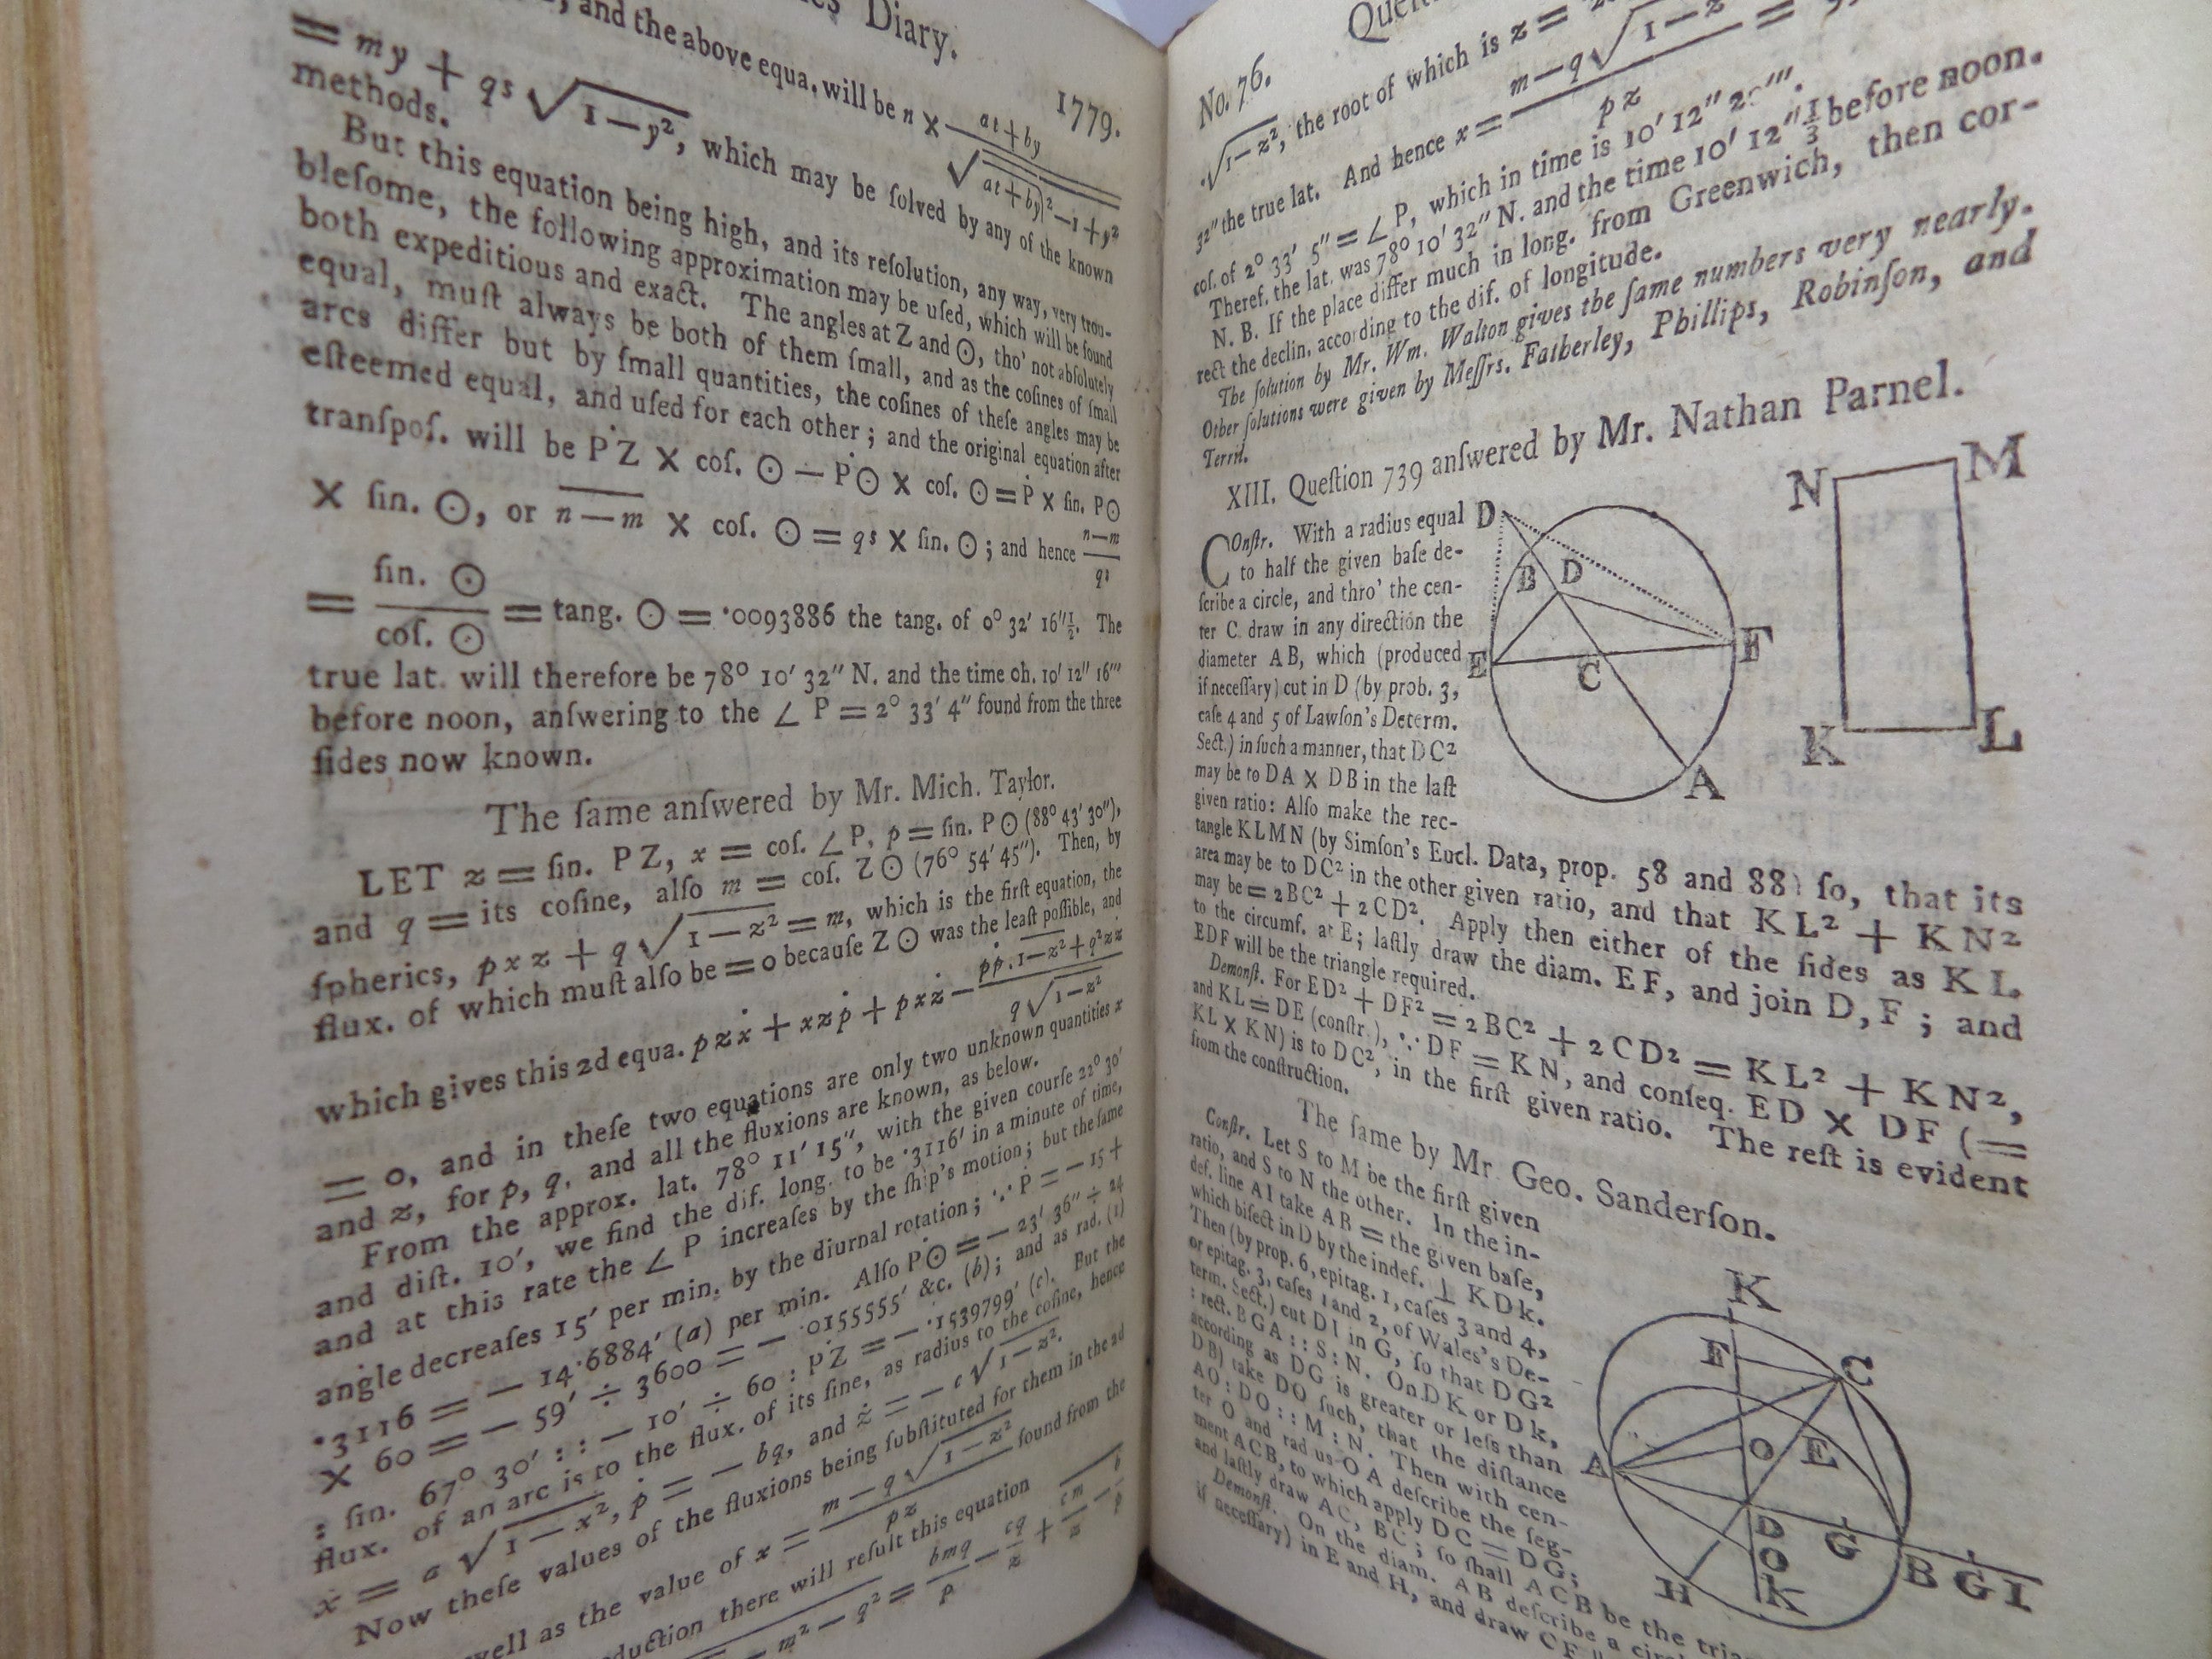 Diary.
1779.
, and the above equa. will be n × at + by / √ at + by)² − 1 + y²
= my + qs √ 1 − y², which may be ſolved by any of the known
methods.
But this equation being high, and its reſolution, any way, very trou-
bleſome, the following approximation may be uſed, which will be found
both expeditious and exact. The angles at Z and ⊙, tho' not abſolutely
equal, muſt always be both of them ſmall, and as the coſines of ſmall
arcs differ but by ſmall quantities, the coſines of theſe angles may be
eſteemed equal, and uſed for each other; and the original equation after
tranſpoſ. will be ṖZ × coſ. ⊙ − Ṗ⊙ × coſ. ⊙ = Ṗ × ſin. P⊙
× ſin. ⊙, or n − m × coſ. ⊙ = qs × ſin. ⊙; and hence n−m / qs
= ſin. ⊙ / coſ. ⊙ = tang. ⊙ = ·0093886 the tang. of 0° 32′ 16″½. The
true lat. will therefore be 78° 10′ 32″ N. and the time 0h. 10′ 12″ 16‴
before noon, anſwering to the ∠ P = 2° 33′ 4″ found from the three
ſides now known.
The ſame anſwered by Mr. Mich. Taylor.
LET z = ſin. PZ, x = coſ. ∠P, p = ſin. P⊙ (88° 43′ 30″),
and q = its coſine, alſo m = coſ. Z⊙ (76° 54′ 45″). Then, by
ſpherics, pxz + q √ 1 − z² = m, which is the firſt equation, the
flux. of which muſt alſo be = 0 becauſe Z⊙ was the leaſt poſſible, and
which gives this 2d equa. pzẋ + xzṗ + pxż − pṗ . 1−z² + q²zż / q √ 1−z²
= 0, and in theſe two equations are only two unknown quantities x
and z, for p, q, and all the fluxions are known, as below.
From the approx. lat. 78° 11′ 15″, with the given courſe 22° 30′
and diſt. 10′, we find the dif. long. to be ·3116′ in a minute of time,
and at this rate the ∠ P increaſes by the ſhip's motion; but the ſame
angle decreaſes 15′ per min. by the diurnal rotation; ∵ Ṗ = − 15 +
·3116 = − 14·6884′ (a) per min. Alſo Ṗ⊙ = − 23′ 36″ ÷ 24
× 60 = − 59′ ÷ 3600 = − ·0155555′ &c. (b); and as rad. (1)
: ſin. 67° 30′ :: − 10′ ÷ 60 : ṖZ = − ·1539799′ (c). But the
flux. of an arc is to the flux. of its ſine, as radius to the coſine, hence
ẋ = a √ 1 − x², ṗ = − bq, and ż = − c √ 1 − z².
Now theſe values of the fluxions being ſubſtituted for them in the 2d
well as the value of x = m − q √ 1 − z² / pz found from the
duction there will reſult this equation
− m² − q² = bmq / p − cq / z + cm / z − b / p
No. 76.
√ 1−z², the root of which is z =
32″ the true lat. And hence x = m − q √ 1 − z / pz =
coſ. of 2° 33′ 5″ = ∠ P, which in time is 10′ 12″ 20‴.
Theref. the lat. was 78° 10′ 32″ N. and the time 10′ 12″⅓ before noon.
N. B. If the place differ much in long. from Greenwich, then cor-
rect the declin. according to the dif. of longitude.
The ſolution by Mr. Wm. Walton gives the ſame numbers very nearly.
Other ſolutions were given by Meſſrs. Fatherley, Phillips, Robinſon, and
Terril.
XIII. Queſtion 739 anſwered by Mr. Nathan Parnel.
COnſtr. With a radius equal
to half the given baſe de-
ſcribe a circle, and thro' the cen-
ter C draw in any direction the
diameter AB, which (produced
if neceſſary) cut in D (by prob. 3,
caſe 4 and 5 of Lawſon's Determ.
Sect.) in ſuch a manner, that DC²
may be to DA × DB in the laſt
given ratio: Alſo make the rec-
tangle KLMN (by Simſon's Eucl. Data, prop. 58 and 88) ſo, that its
area may be to DC² in the other given ratio, and that KL² + KN²
may be = 2BC² + 2CD². Apply then either of the ſides as KL
to the circumf. at E; laſtly draw the diam. EF, and join D, F; and
EDF will be the triangle required.
Demonſt. For ED² + DF² = 2BC² + 2CD² = KL² + KN²,
and KL = DE (conſtr.), ∵ DF = KN, and conſeq. ED × DF (=
KL × KN) is to DC², in the firſt given ratio. The reſt is evident
from the conſtruction.
D
B
D
E
C
F
A
N
M
K
L
The ſame by Mr. Geo. Sanderſon.
Conſtr. Let S to M be the firſt given
ratio, and S to N the other. In the in-
def. line AI take AB = the given baſe,
which biſect in D by the indef. ⊥ KDk.
Then (by prop. 6, epitag. 1, caſes 3 and 4,
or epitag. 3, caſes 1 and 2, of Wales's De-
term. Sect.) cut DI in G, ſo that DG²
: rect. BGA :: S : N. On DK or Dk,
according as DG is greater or leſs than
DB) take DO ſuch, that the diſtance
AO : DO :: M : N. Then with cen-
ter O and radius OA deſcribe the ſeg-
ment ACB, to which apply DC = DG;
and laſtly draw AC, BC; ſo ſhall ACB be the
Demonſt. On the diam. AB deſcribe a
if neceſſary) in E and H, and draw CF
K
F
C
A
O
E
D
O
G
B
G
I
H
K